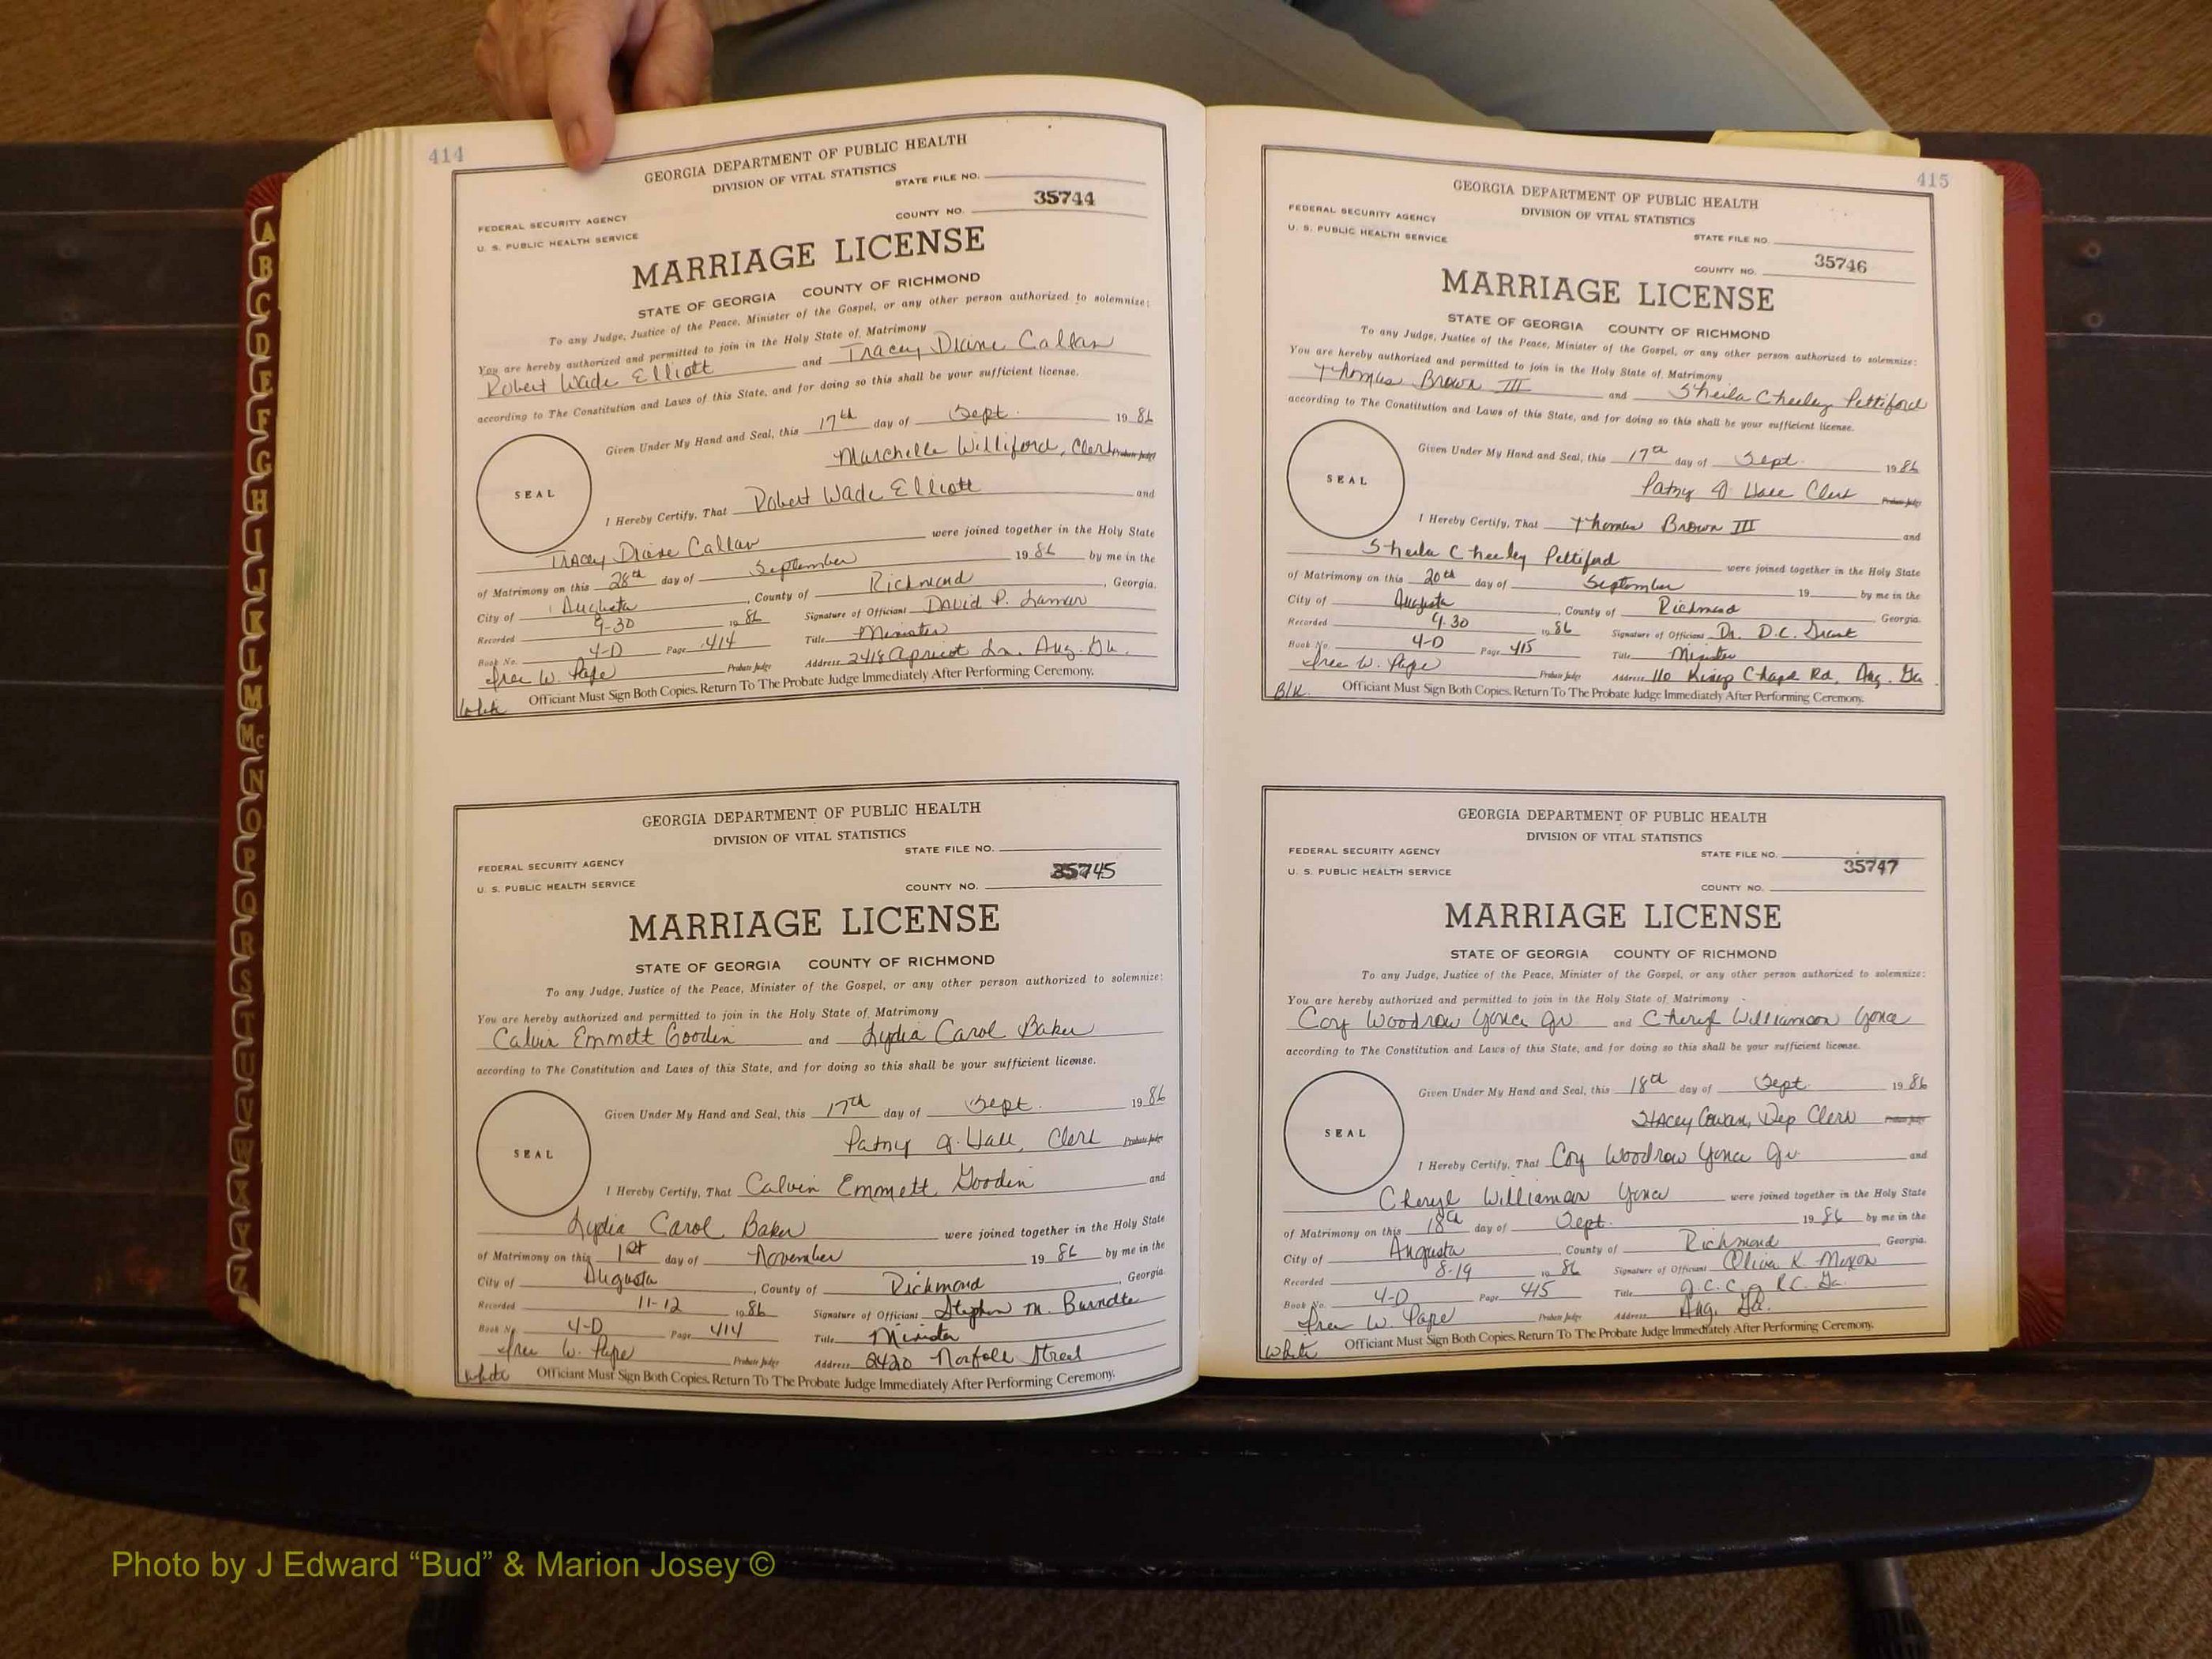 414
GEORGIA DEPARTMENT OF PUBLIC HEALTH
DIVISION OF VITAL STATISTICS
STATE FILE NO.
35744
FEDERAL SECURITY AGENCY
COUNTY NO.
U. S. PUBLIC HEALTH SERVICE
MARRIAGE LICENSE
STATE OF GEORGIA COUNTY OF RICHMOND
To any Judge, Justice of the Peace, Minister of the Gospel, or any other person authorized to solemnize:
You are hereby authorized and permitted to join in the Holy State of Matrimony
Robert Wade Elliott and Tracey Diane Callan
according to The Constitution and Laws of this State, and for doing so this shall be your sufficient license.
Given Under My Hand and Seal, this 17th day of Sept. 1986
Marchelle Williford, Clerk Probate Judge
SEAL
I Hereby Certify, That Robert Wade Elliott and
Tracey Diane Callan were joined together in the Holy State
of Matrimony on this 28th day of September 1986 by me in the
City of Augusta, County of Richmond, Georgia.
Recorded 9-30 1986 Signature of Officiant David P. Lamar
Book No. 4-D Page 414 Title Minister
W. Pape Probate Judge Address 2418 Apricot Ln. Aug. Ga.
White Officiant Must Sign Both Copies. Return To The Probate Judge Immediately After Performing Ceremony.
GEORGIA DEPARTMENT OF PUBLIC HEALTH
DIVISION OF VITAL STATISTICS
STATE FILE NO.
FEDERAL SECURITY AGENCY
35745
U. S. PUBLIC HEALTH SERVICE
COUNTY NO.
MARRIAGE LICENSE
STATE OF GEORGIA COUNTY OF RICHMOND
To any Judge, Justice of the Peace, Minister of the Gospel, or any other person authorized to solemnize:
You are hereby authorized and permitted to join in the Holy State of Matrimony
Calvin Emmett Gooden and Lydia Carol Baker
according to The Constitution and Laws of this State, and for doing so this shall be your sufficient license.
Given Under My Hand and Seal, this 17th day of Sept. 1986
Hall, Clerk Probate Judge
SEAL
I Hereby Certify, That Calvin Emmett Gooden and
Lydia Carol Baker were joined together in the Holy State
of Matrimony on this 1st day of November 1986 by me in the
City of Augusta, County of Richmond, Georgia
Recorded 11-12 1986 Signature of Officiant M.
Book No. 4-D Page 414 Title Minister
W. Pape Probate Judge Address 2420 Norfolk Street
White Officiant Must Sign Both Copies. Return To The Probate Judge Immediately After Performing Ceremony.
415
GEORGIA DEPARTMENT OF PUBLIC HEALTH
DIVISION OF VITAL STATISTICS
FEDERAL SECURITY AGENCY
U. S. PUBLIC HEALTH SERVICE
STATE FILE NO.
35746
COUNTY NO.
MARRIAGE LICENSE
STATE OF GEORGIA COUNTY OF RICHMOND
To any Judge, Justice of the Peace, Minister of the Gospel, or any other person authorized to solemnize:
You are hereby authorized and permitted to join in the Holy State of Matrimony
Thomas Brown III and Sheila Cheeley Pettiford
according to The Constitution and Laws of this State, and for doing so this shall be your sufficient license.
Given Under My Hand and Seal, this 17th day of Sept. 1986
Hall Clerk Probate Judge
SEAL
I Hereby Certify, That Thomas Brown III and
Sheila Cheeley Pettiford were joined together in the Holy State
of Matrimony on this 20th day of September 19 by me in the
City of Augusta, County of Richmond Georgia.
Recorded 9-30 1986 Signature of Officiant Dr. D.C. Grant
Book No. 4-D Page 415 Title Minister
W. Pape Probate Judge Address 110 Kings Chapel Rd, Aug. Ga
Blk. Officiant Must Sign Both Copies. Return To The Probate Judge Immediately After Performing Ceremony.
GEORGIA DEPARTMENT OF PUBLIC HEALTH
DIVISION OF VITAL STATISTICS
FEDERAL SECURITY AGENCY
STATE FILE NO.
35747
U. S. PUBLIC HEALTH SERVICE
COUNTY NO.
MARRIAGE LICENSE
STATE OF GEORGIA COUNTY OF RICHMOND
To any Judge, Justice of the Peace, Minister of the Gospel, or any other person authorized to solemnize:
You are hereby authorized and permitted to join in the Holy State of Matrimony
Coy Woodrow Yonce Jr and Cheryl Williamson Yonce
according to The Constitution and Laws of this State, and for doing so this shall be your sufficient license.
Given Under My Hand and Seal, this 18th day of Sept. 1986
Stacey Cowan, Dep Clerk Probate Judge
SEAL
I Hereby Certify, That Coy Woodrow Yonce Jr. and
Cheryl Williamson Yonce were joined together in the Holy State
of Matrimony on this 18th day of Sept. 1986 by me in the
City of Augusta, County of Richmond, Georgia.
Recorded 8-19 1986 Signature of Officiant Olivia K. Mixon
Book No. 4-D Page 415 Title J.C.C. R.C. Ga.
W. Pape Probate Judge Address Aug. Ga.
White Officiant Must Sign Both Copies. Return To The Probate Judge Immediately After Performing Ceremony.
A
B
C
D
E
F
G
H
I
J
K
L
M
Mc
N
O
P
Q
R
S
T
U
V
W
X
Y
Z
Photo by J Edward “Bud” & Marion Josey ©